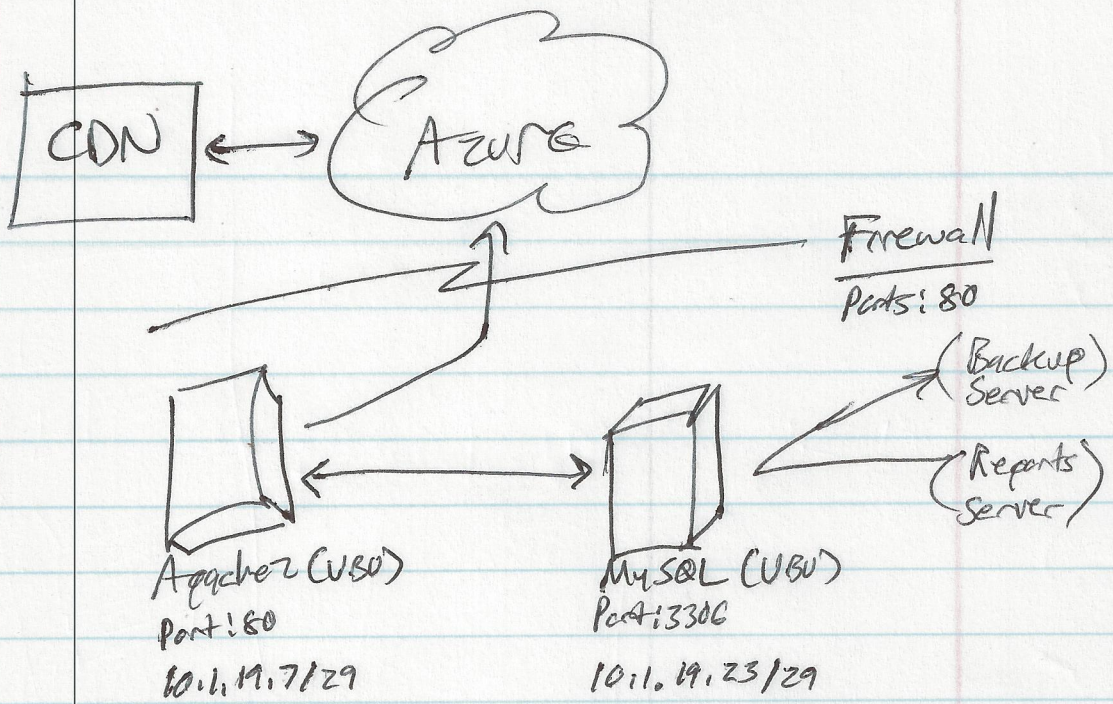 CDN
Azure
Firewall
Ports: 80
(Backup
Server)
(Reports
Server)
Apache2 (UBU)
Port: 80
10.1.19.7/29
MySQL (UBU)
Port: 3306
10.1.19.23/29